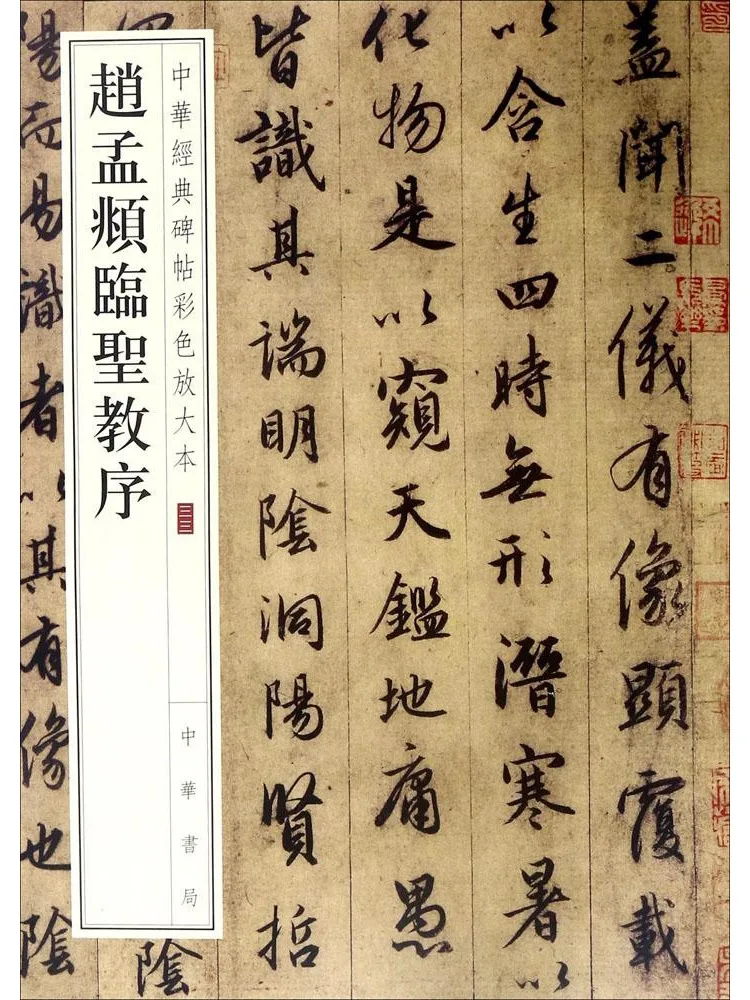 蓋聞二儀有像顯覆載
以含生四時無形潛寒暑以
化物是以窺天鑑地庸愚
皆識其端明陰洞陽賢哲
陰
陽而易識者以其有像也陰
中華經典碑帖彩色放大本
三三
中華書局
趙孟頫臨聖教序